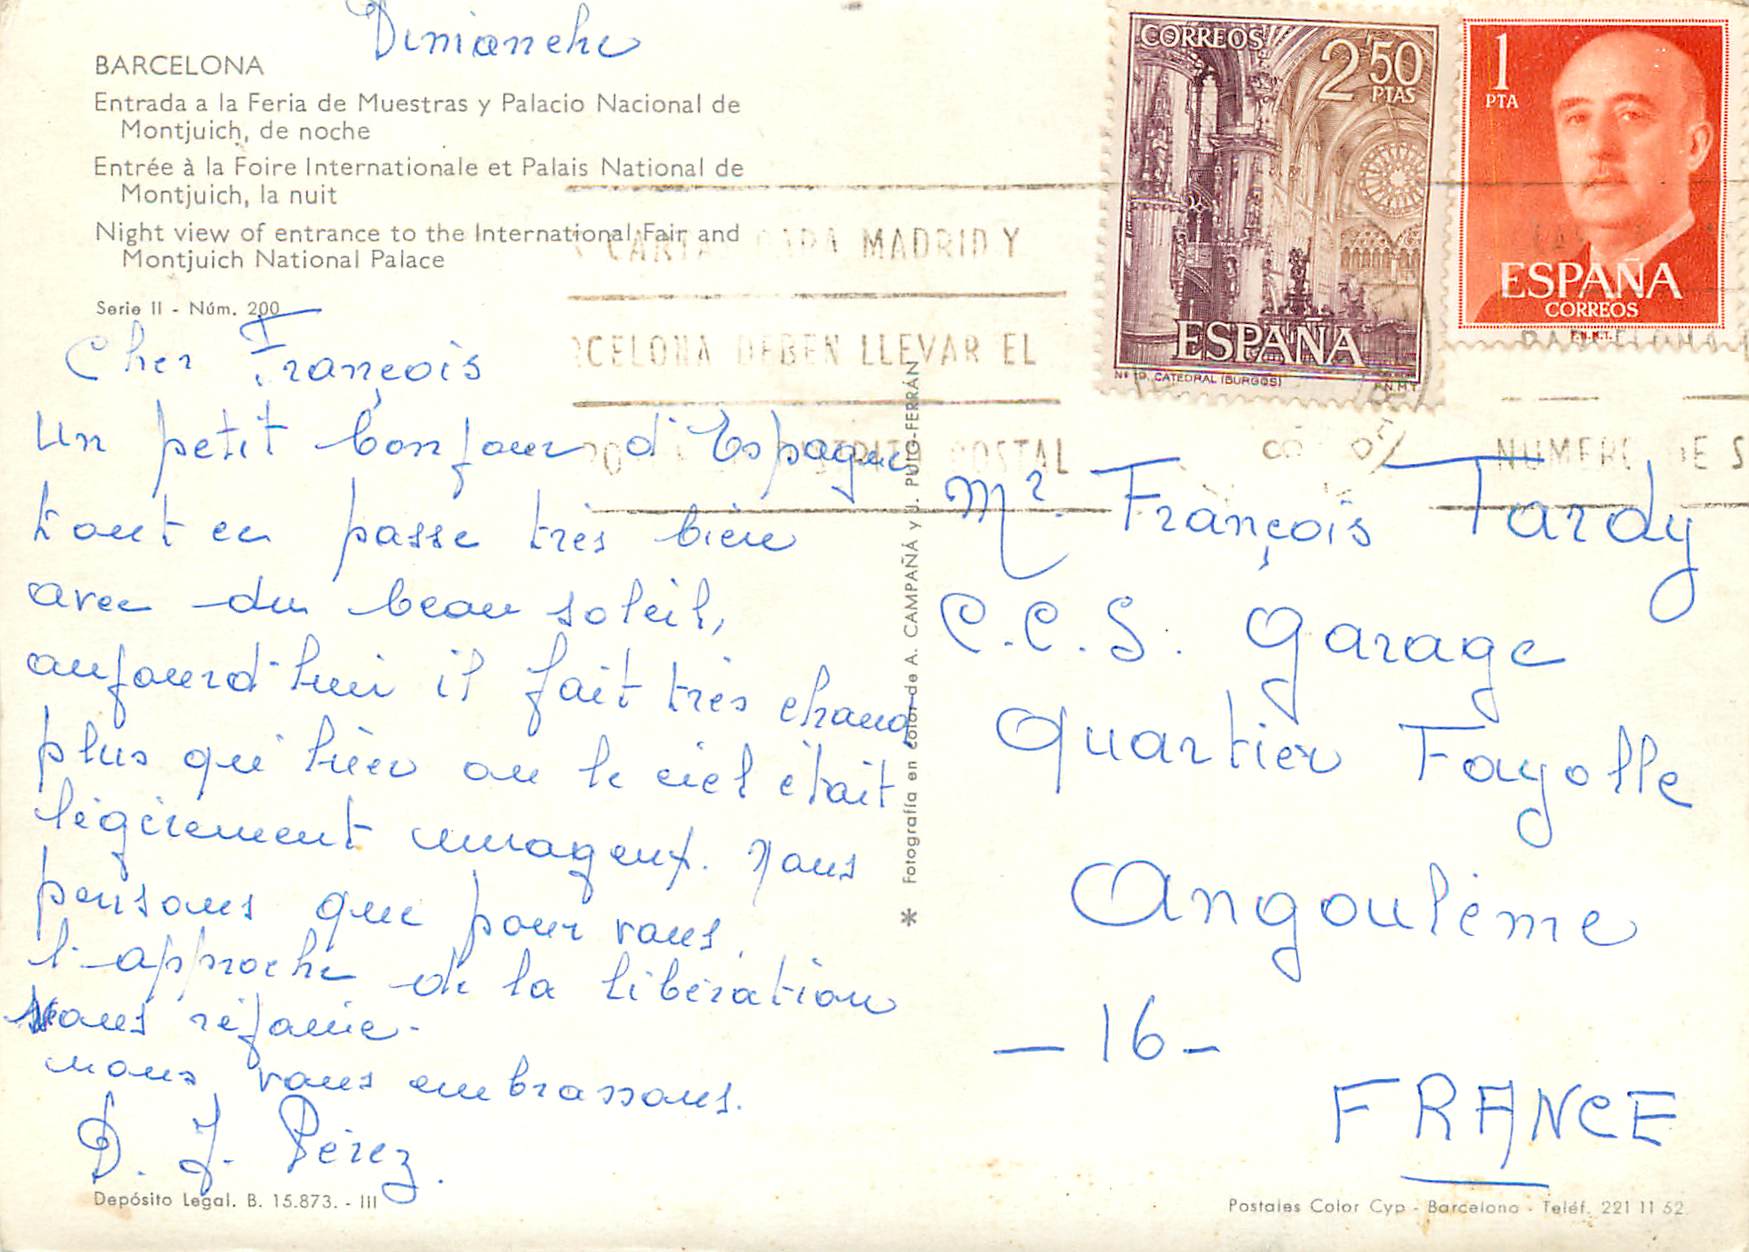 Dimanche
BARCELONA
Entrada a la Feria de Muestras y Palacio Nacional de
Montjuich, de noche
Entrée à la Foire Internationale et Palais National de
Montjuich, la nuit
Night view of entrance to the International Fair and
Montjuich National Palace
Serie II - Núm. 200
Cher François
Un petit bonjour d'Espagne
tout ce passe très bien
avec du beau soleil,
aujourd'hui il fait très chaud
plus qu'hier ou le ciel était
légèrement nuageux. Nous
pensons que pour vous,
l'approche de la libération
vous réjouie.
nous vous embrassons.
D. J. Pérez.
Depósito Legal. B. 15.873. - III
* Fotografía en color de A. CAMPAÑÁ y J. PUIG-FERRÁN
CORREOS
2'50
PTAS
ESPAÑA
CATEDRAL (BURGOS)
F.N.M.T.
1
PTA
ESPAÑA
CORREOS
F.N.M.T.
CARTAS PARA MADRID Y
BARCELONA DEBEN LLEVAR EL
DISTRITO POSTAL
BARCELONA
NUMERO DE
Mr. François Tardy
C.C.S. Garage
Quartier Fayolle
Angoulême
- 16 -
FRANCE
Postales Color Cyp - Barcelona - Teléf. 221 11 52